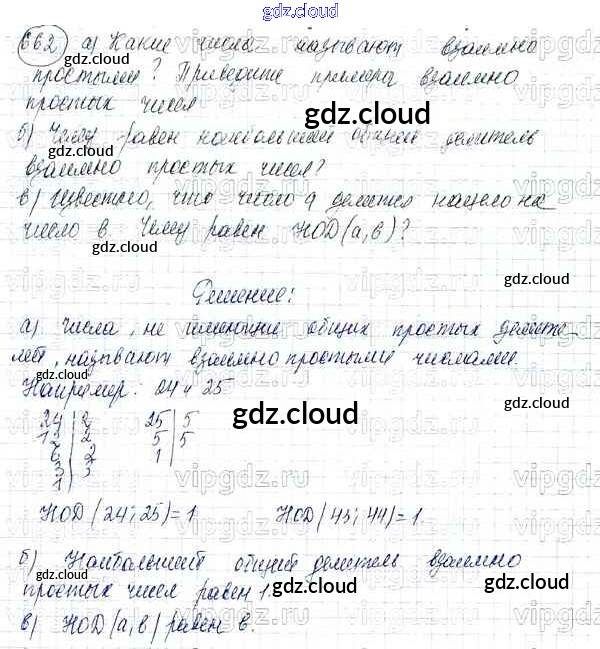 gdz.cloud
662 а) Какие числа называют взаимно
простыми? Приведите примеры взаимно
простых чисел
gdz.cloud
б) Чему равен наибольший общий делитель
взаимно простых чисел?
в) Известно, что число а делится нацело на
число в. Чему равен НОД(а,в)?
gdz.cloud
Решение:
а) Числа, не имеющие общих простых делите-
лей, называют взаимно простыми числами.
Например: 24 и 25
gdz.cloud
24 | 2 25 | 5
12 | 2 5 | 5
6 | 2 1
3 | 3
1
НОД(24; 25)=1 НОД(45; 44)=1.
gdz.cloud
б) Наибольший общий делитель взаимно
простых чисел равен 1.
gdz.cloud
в) НОД(а,в) равен в.
gdz.cloud